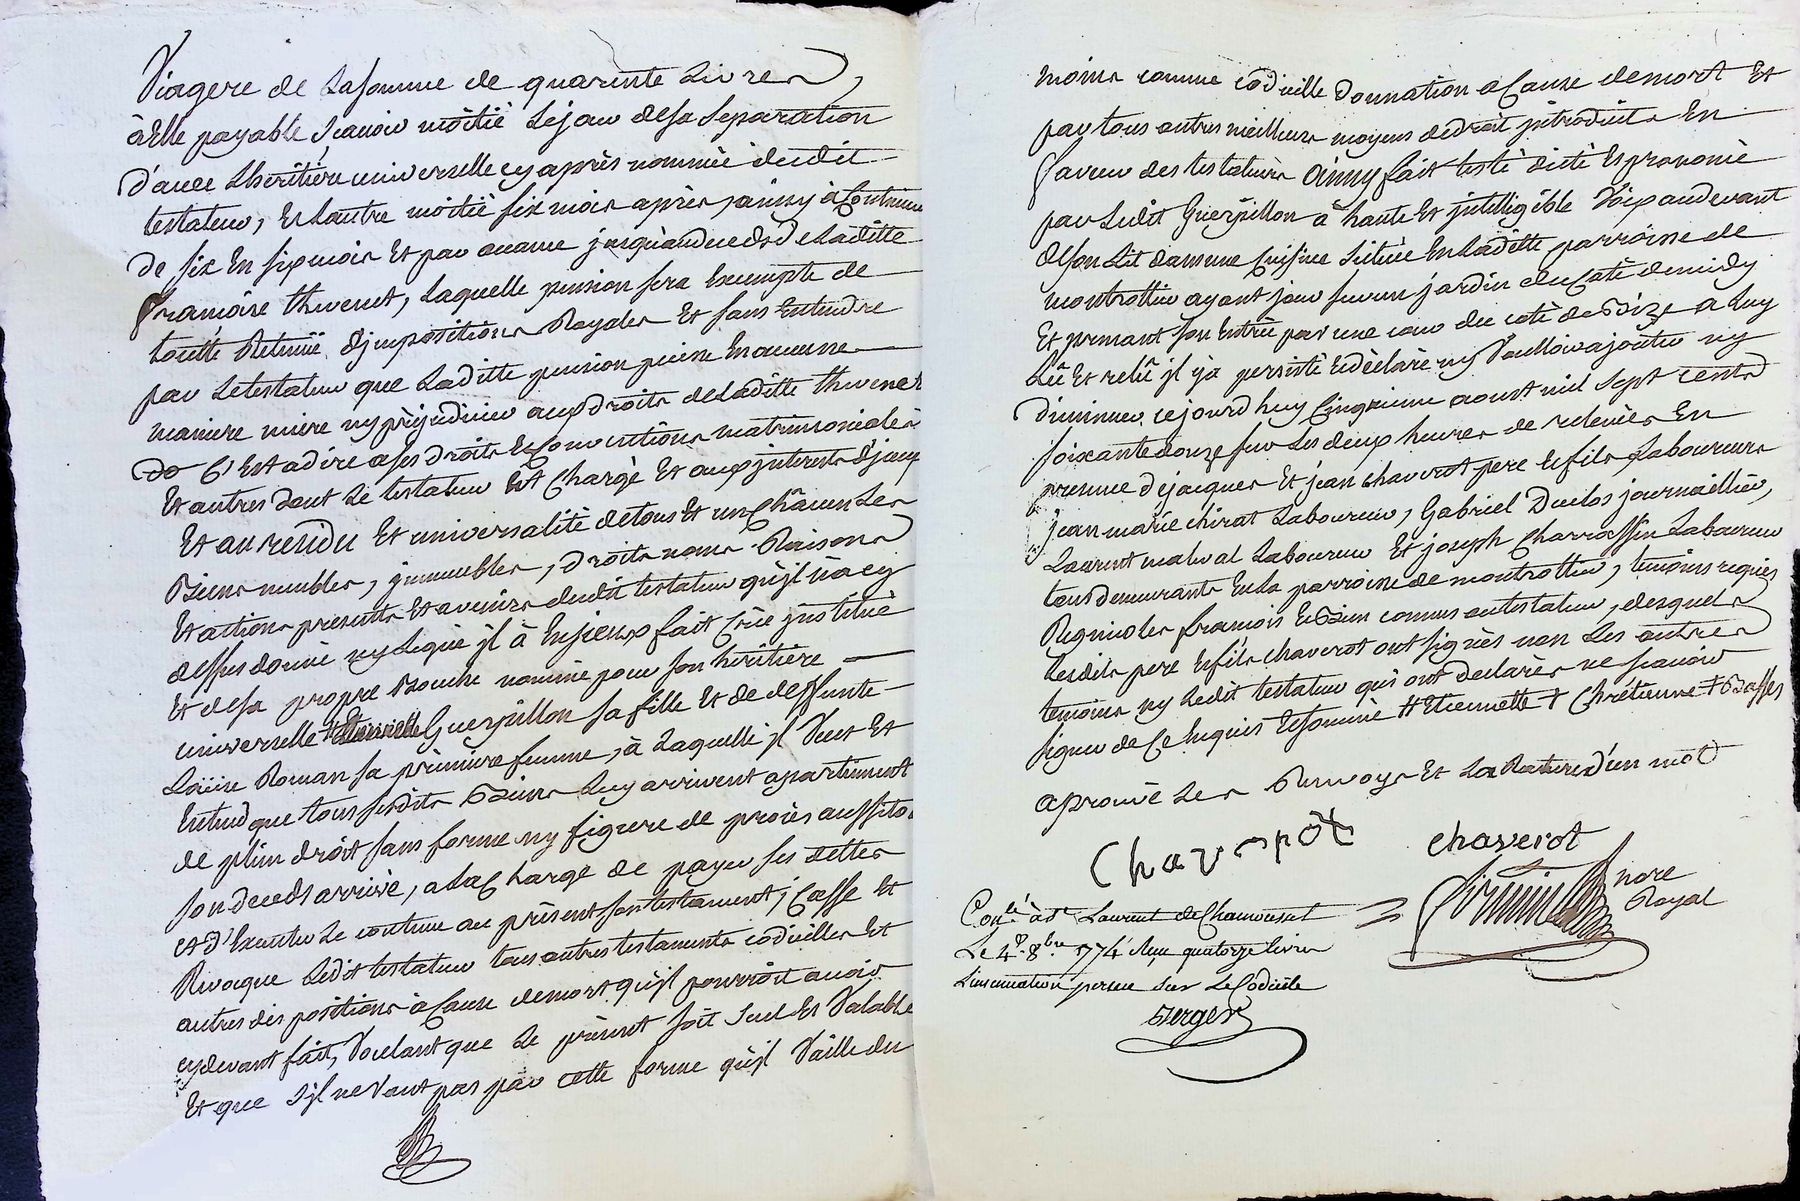 Viagere de La somme de quarente Livres
à Elle payable, scavoir moitié Le jour de sa Separation
d'avec Lheritiere universelle cy après nommée dudit
testateur, Et Lautre moitié six mois après, ainsy à Continuer
de six En six mois Et par avance jusqu'au deceds de Laditte
françoise thevenet, Laquelle pension sera Exempte de
toutte Retenüe d'jmpositions Royales Et sans Entendre
par Le testateur que Laditte pension puisse En aucune
maniere nuire ny préjudicier aux droits de Laditte thevenet
C'Est a dire a ses droits Et Conventions matrimoniales
Et autres dont Le testateur Est Chargé Et aux jnterests d'jceux
Et au rendu Et universalité de tous Et un Châcun Ses
Biens meubles, jmmeubles, droits noms Raisons
Et actions presents Et avenirs dudit testateur qu'jl n'a cy
dessus donné ny Légué jl à Enjceux fait Créé jnstitué
Et de sa propre Bouche nommé pour son héritière
universelle Guerpillon sa fille Et de deffunte
Loüise Roman sa première femme, à Laquelle jl Veut Et
Entend que tous sesdits Biens Luy arrivent apartiennent
de plein droit sans forme ny figure de procès aussitot
son deceds arrivé, a La Charge de payer ses dettes
et d'Executer Le contenu au présent son testament, Casse Et
Revoque Ledit testateur tous autres testaments codicilles Et
autres dispositions à Cause de mort qu'jl pourroit avoir
cydevant fait, Voulant que Le présent soit Seul Et Valable
Et que S'jl ne Vaut pas par cette forme qu'jl Vaille du
moins comme codicille donnation a Cause de mort Et
par tous autres meilleurs moyens de droit jntroduits En
faveur des testateurs Ainsy fait testé dicté Et prononcé
par Ledit Guerpillon à haute Et jntelligible Voix au devant
de son Lit dans une Cuisine Située En Laditte parroisse de
montrottier ayant jour sur un jardin du Coté de midy
Et prenant son Entrée par une cour du coté de Bize a Luy
Lû Et relû jl y à persisté Et déclaré ny Vouloir ajouter ny
diminuer ce jourd'huy Cinquieme aoust mil Sept Cents
soixante douze sur Les deux heures de relevées En
presence de jacques Et jean chaverot pere Et fils Laboureurs
jean marie chirat Laboureur, Gabriel Duclos journaillier,
Laurent maluval Laboureur Et joseph Charrassin Laboureur
tous demeurants En La parroisse de montrottier, temoins requis
Regnicoles françois Et Bien connus au testateur, desquels
Lesdits pere Et fils chaverot ont signés non Les autres
temoins ny Ledit testateur qui ont declarés ne scavoir
signer de Ce Enquis Et sommé # Etiennette + Chrétienne +
aprouvé Les Renvoys Et La Rature d'un mot
Chaverot chaverot
nore
Royal
Conlé à St Laurent de Chamousset
Le 4e 8bre 1774 Reçu quatorze livres
L'insinuation perçue Sur Le Codicile
Berger